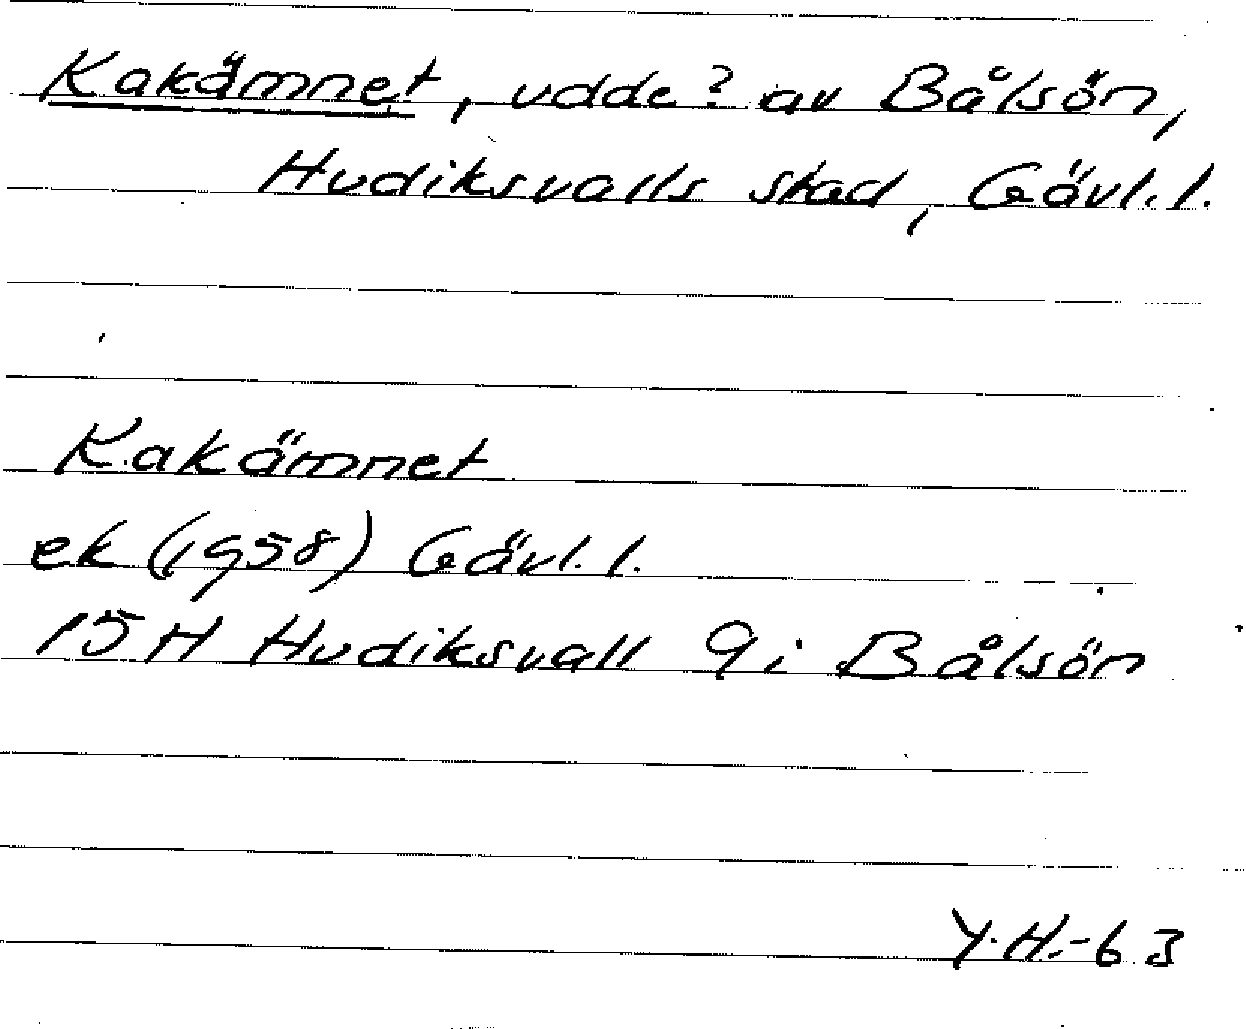 Kakämnet, udde? av Bålsön,
Hudiksvalls stad, Gävl.l.
Kakämnet
ek (1958) Gävl.l.
15H Hudiksvall 9i Bålsön
Y.H.-63